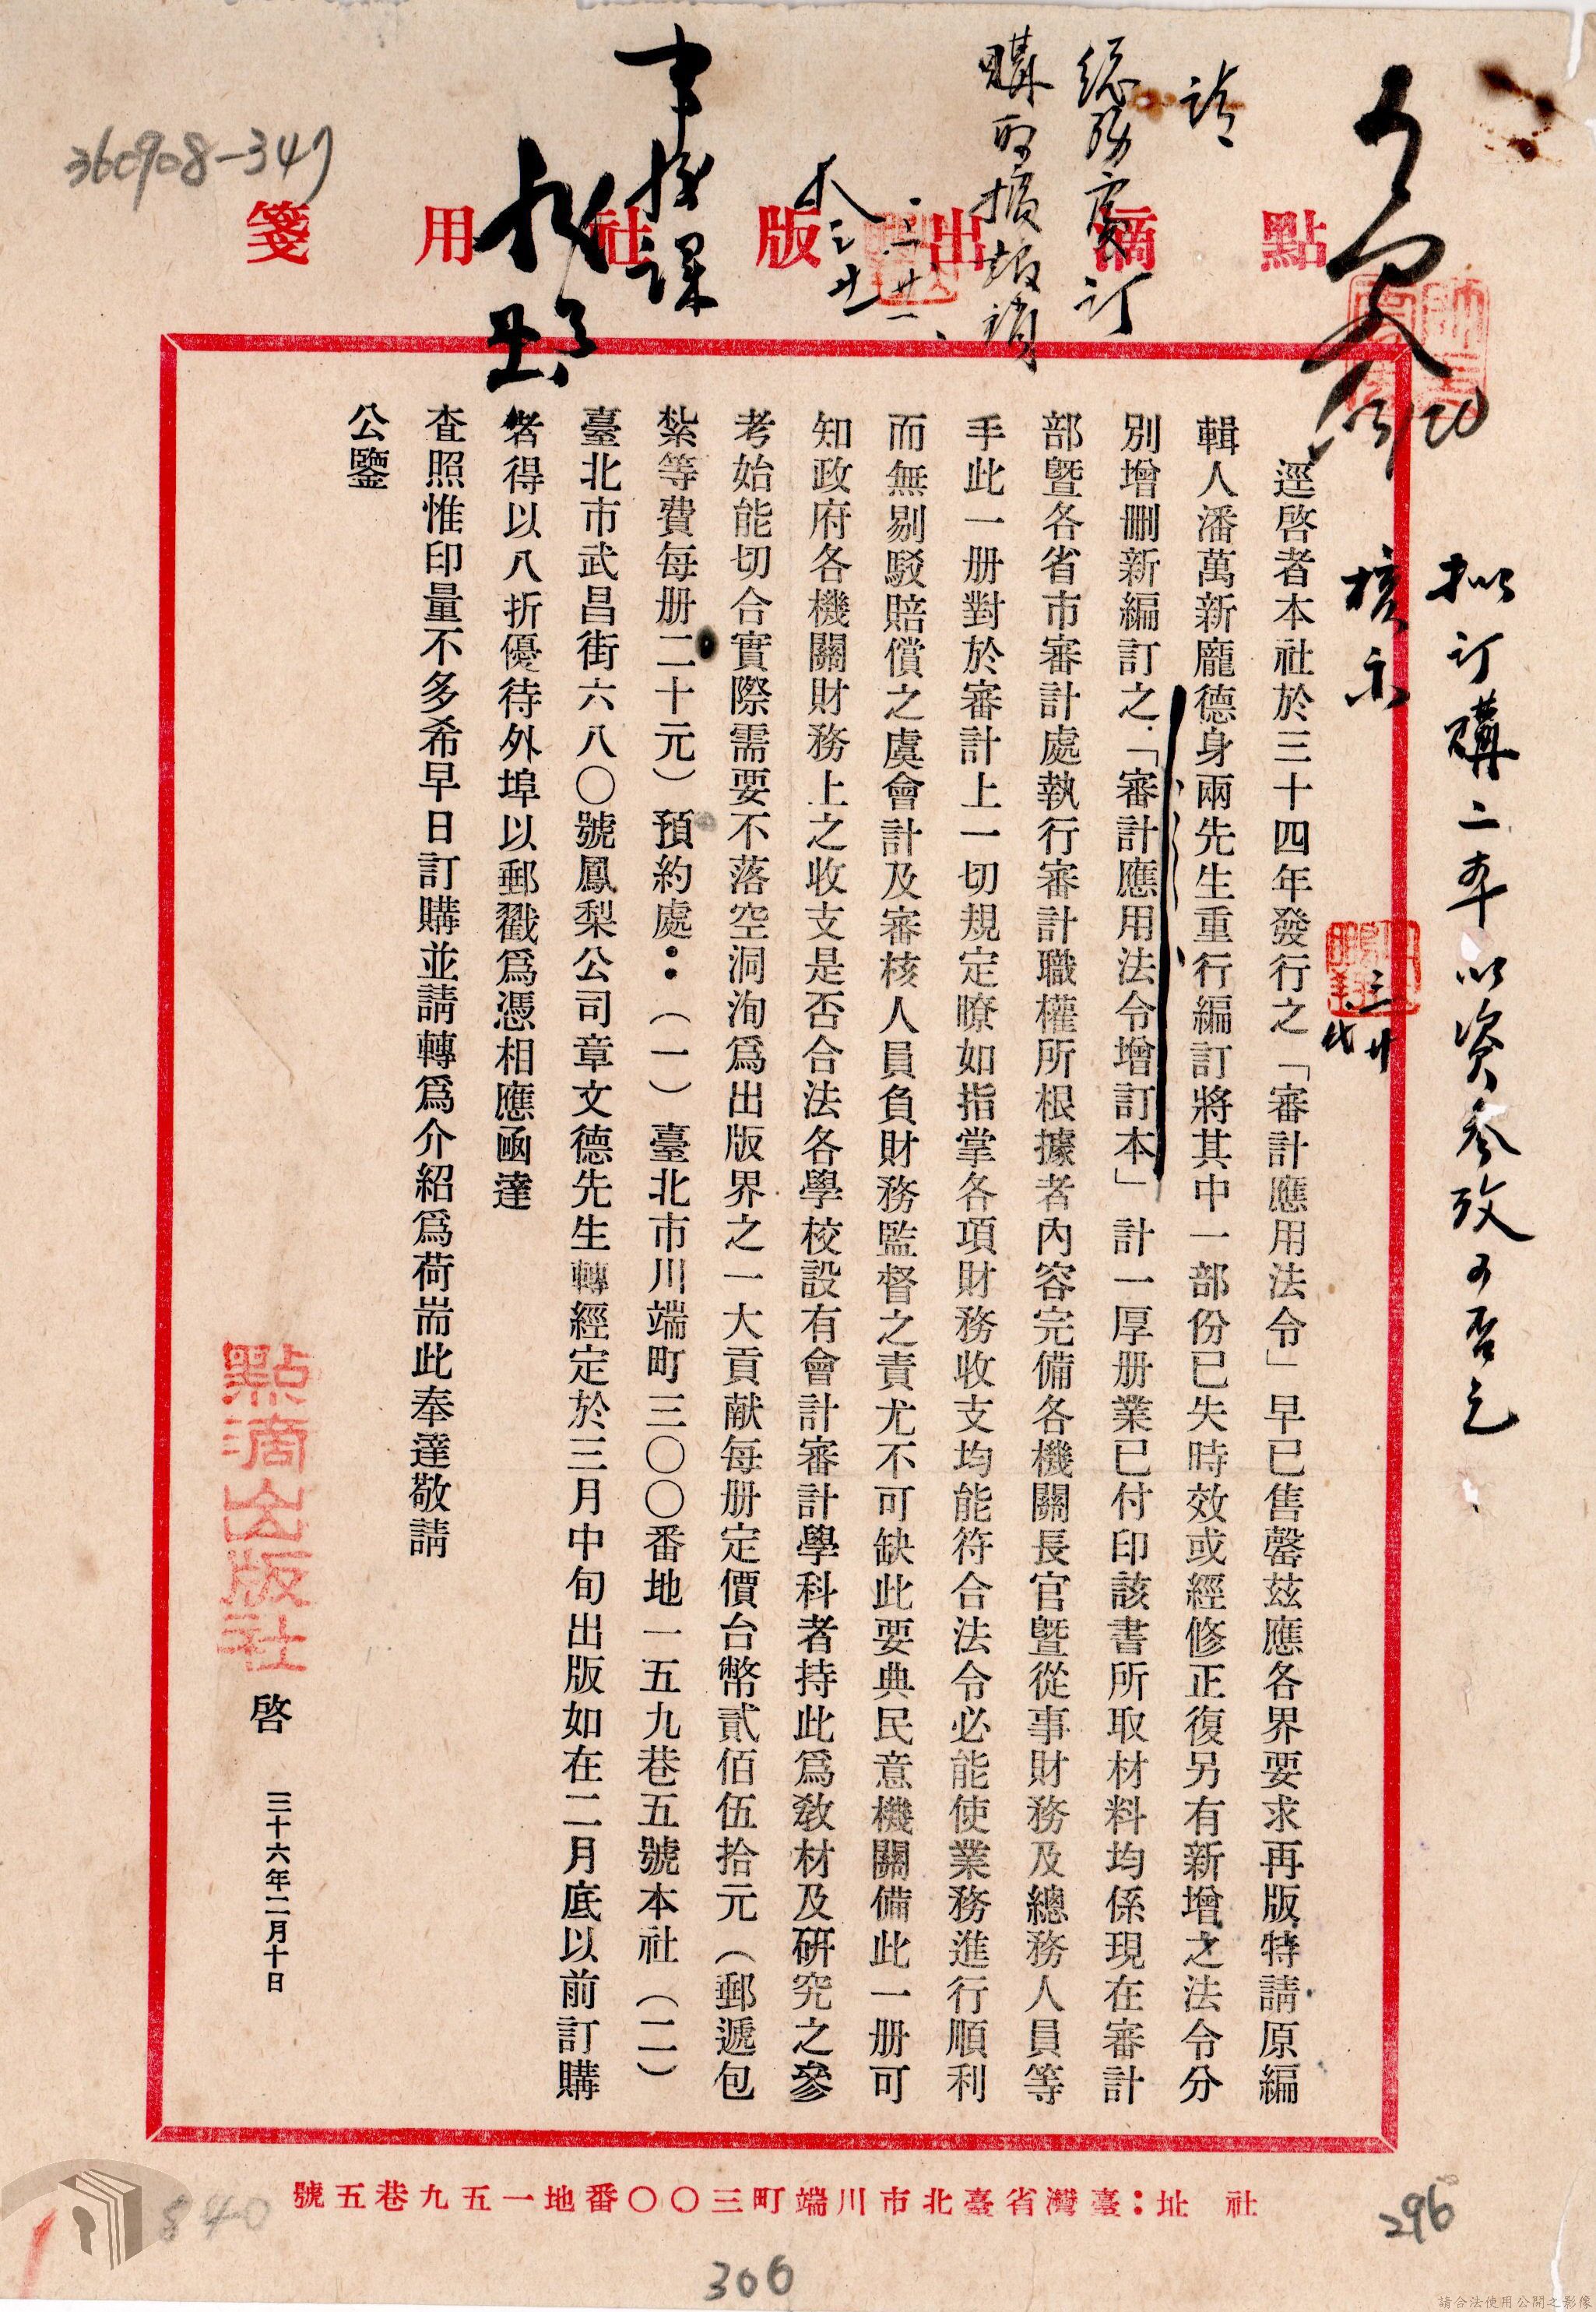 360908-347
點滴出版社用箋
請
總務處訂
購取據報銷
三、廿一、
審核課
擬訂購二本以資參攷可否乞
核示
三廿
逕啓者本社於三十四年發行之「審計應用法令」早已售罄茲應各界要求再版特請原編
輯人潘萬新龐德身兩先生重行編訂將其中一部份已失時效或經修正復另有新增之法令分
別增刪新編訂之「審計應用法令增訂本」計一厚册業已付印該書所取材料均係現在審計
部曁各省市審計處執行審計職權所根據者內容完備各機關長官曁從事財務及總務人員等
手此一册對於審計上一切規定瞭如指掌各項財務收支均能符合法令必能使業務進行順利
而無剔駁賠償之虞會計及審核人員負財務監督之責尤不可缺此要典民意機關備此一册可
知政府各機關財務上之收支是否合法各學校設有會計審計學科者持此爲敎材及研究之參
考始能切合實際需要不落空洞洵爲出版界之一大貢献每册定價台幣貳佰伍拾元（郵遞包
紮等費每册二十元）預約處：（一）臺北市川端町三〇〇番地一五九巷五號本社（二）
臺北市武昌街六八〇號鳳梨公司章文德先生轉經定於三月中旬出版如在二月底以前訂購
者得以八折優待外埠以郵戳爲憑相應函達
查照惟印量不多希早日訂購並請轉爲介紹爲荷耑此奉達敬請
公鑒
點滴出版社 啓 三十六年二月十日
社 址：臺灣省臺北市川端町三〇〇番地一五九巷五號
840
306
296
請合法使用公開之影像